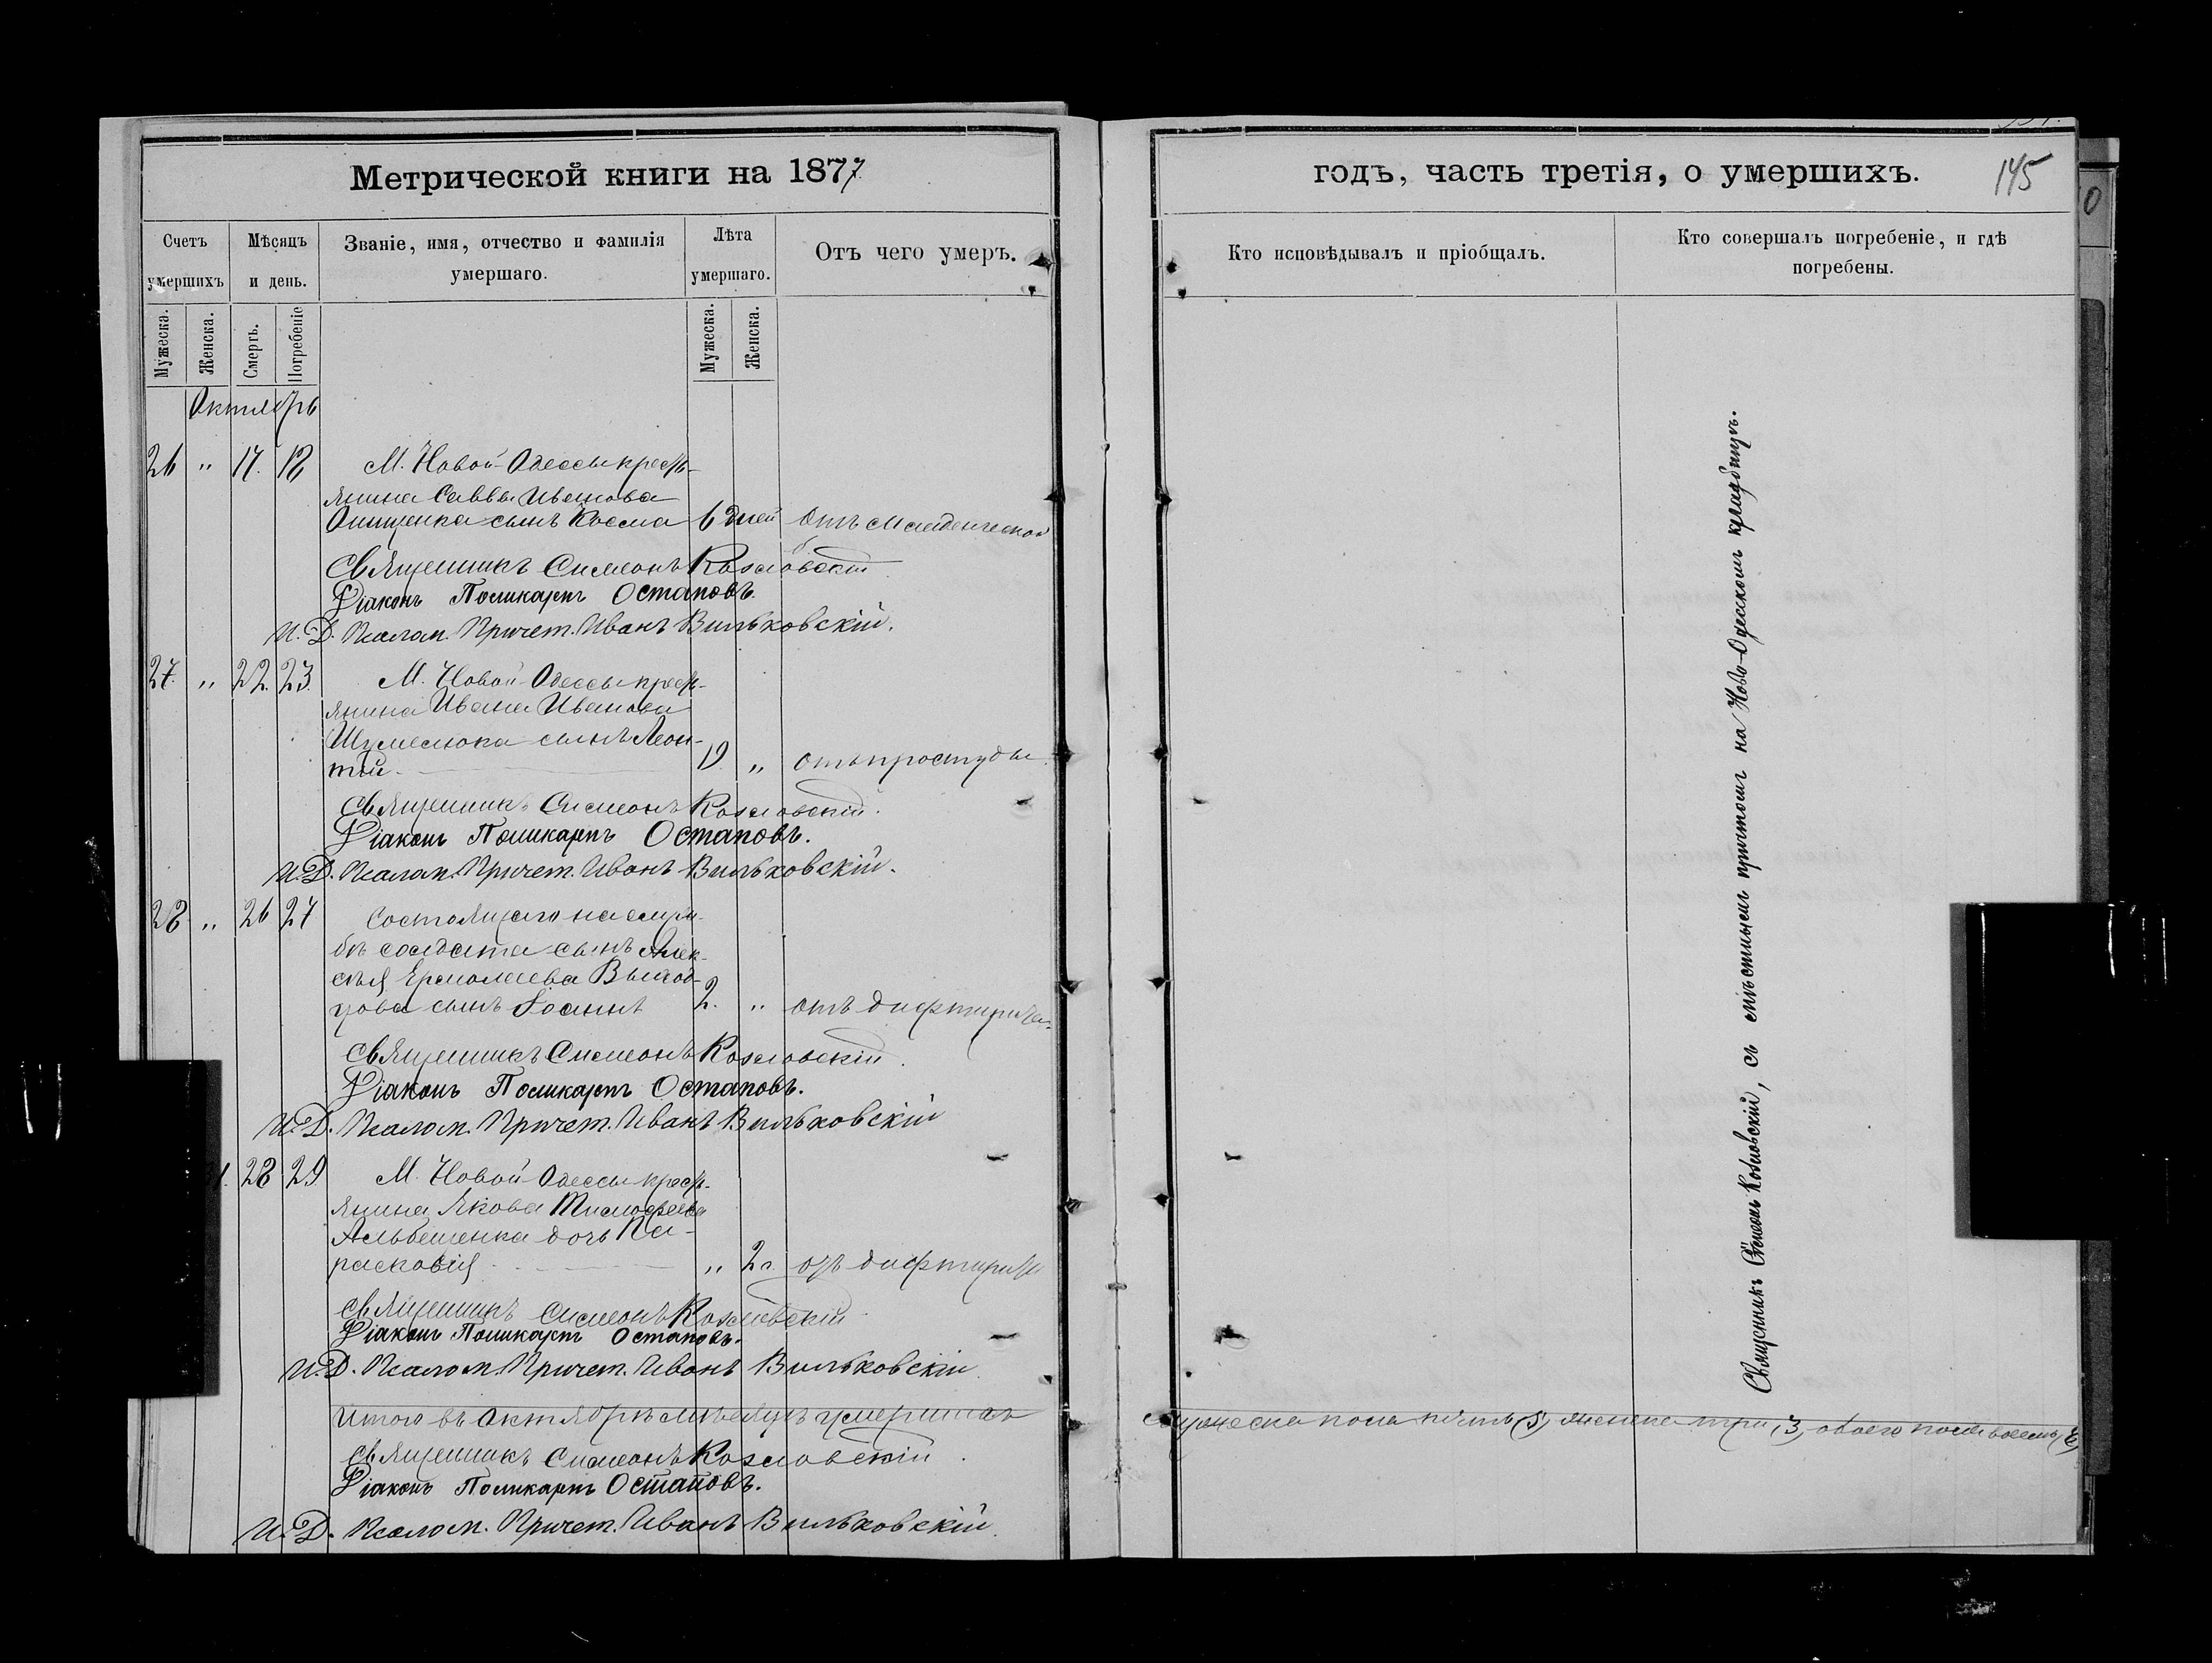 Метрической книги на 1877
Счетъ умершихъ
Мѣсяцъ и день.
Званіе, имя, отчество и фамилія умершаго.
Лѣта умершаго.
Отъ чего умеръ.
Мужеска.
Женска.
Смерть.
Погребеніе
Мужеска.
Женска.
Октябрь
26 " 17. 18 М. Новой-Одессы кресть-
янина Саввы Иванова
Онищенка сынъ Косма 6 дней Отъ младенческой
Священникъ Симеонъ Козловскій
Діаконъ Поликарпъ Остаповъ.
И. Д. Псалом. Причет. Иванъ Вильковскій.
27. " 22. 23. М. Новой-Одессы кресть-
янина Ивана Иванова
Шумелюка сынъ Леон-
тій 19 " отъ простуды
Священникъ Симеонъ Козловскій.
Діаконъ Поликарпъ Остаповъ.
И. Д. Псалом. Причет. Иванъ Вильковскій.
28 " 26 27 Состоящаго на служ-
бѣ солдата сынъ Алек-
сѣя Ермолаева
сынъ Іоаннъ 2. " отъ дифтирита
Священникъ Симеонъ Козловскій.
Діаконъ Поликарпъ Остаповъ.
И. Д. Псалом. Причет. Иванъ Вильковскій
28 29 М. Новой-Одессы кресть-
янина Якова Тимофеева
Альбещенка дочь Па-
расковія " 2 г. отъ дифтирита
Священникъ Симеонъ Козловскій.
Діаконъ Поликарпъ Остаповъ.
И. Д. Псалом. Причет. Иванъ Вильковскій
Итого въ Октябрѣ мѣсяцѣ умершихъ
Священникъ Симеонъ Козловскій.
Діаконъ Поликарпъ Остаповъ.
И. Д. Псалом. Причет. Иванъ Вильковскій.
годъ, часть третія, о умершихъ.
145
Кто исповѣдывалъ и пріобщалъ.
Кто совершалъ погребеніе, и гдѣ погребены.
Священникъ Симеонъ Козловскій, съ мѣстнымъ причтомъ на Ново-Одесскомъ кладбищѣ.
мужеска пола пять (5) женска три, 3, обоего пола восемь (8)